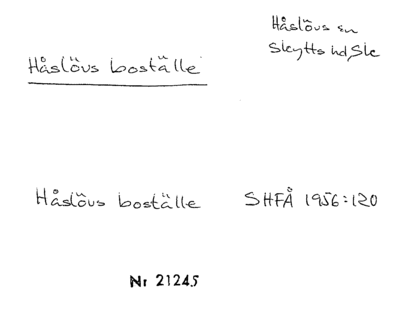 Håslövs sn
Skytts hd, Sk
Håslövs boställe
Håslövs boställe SHFÅ 1956:120
Nr 21245